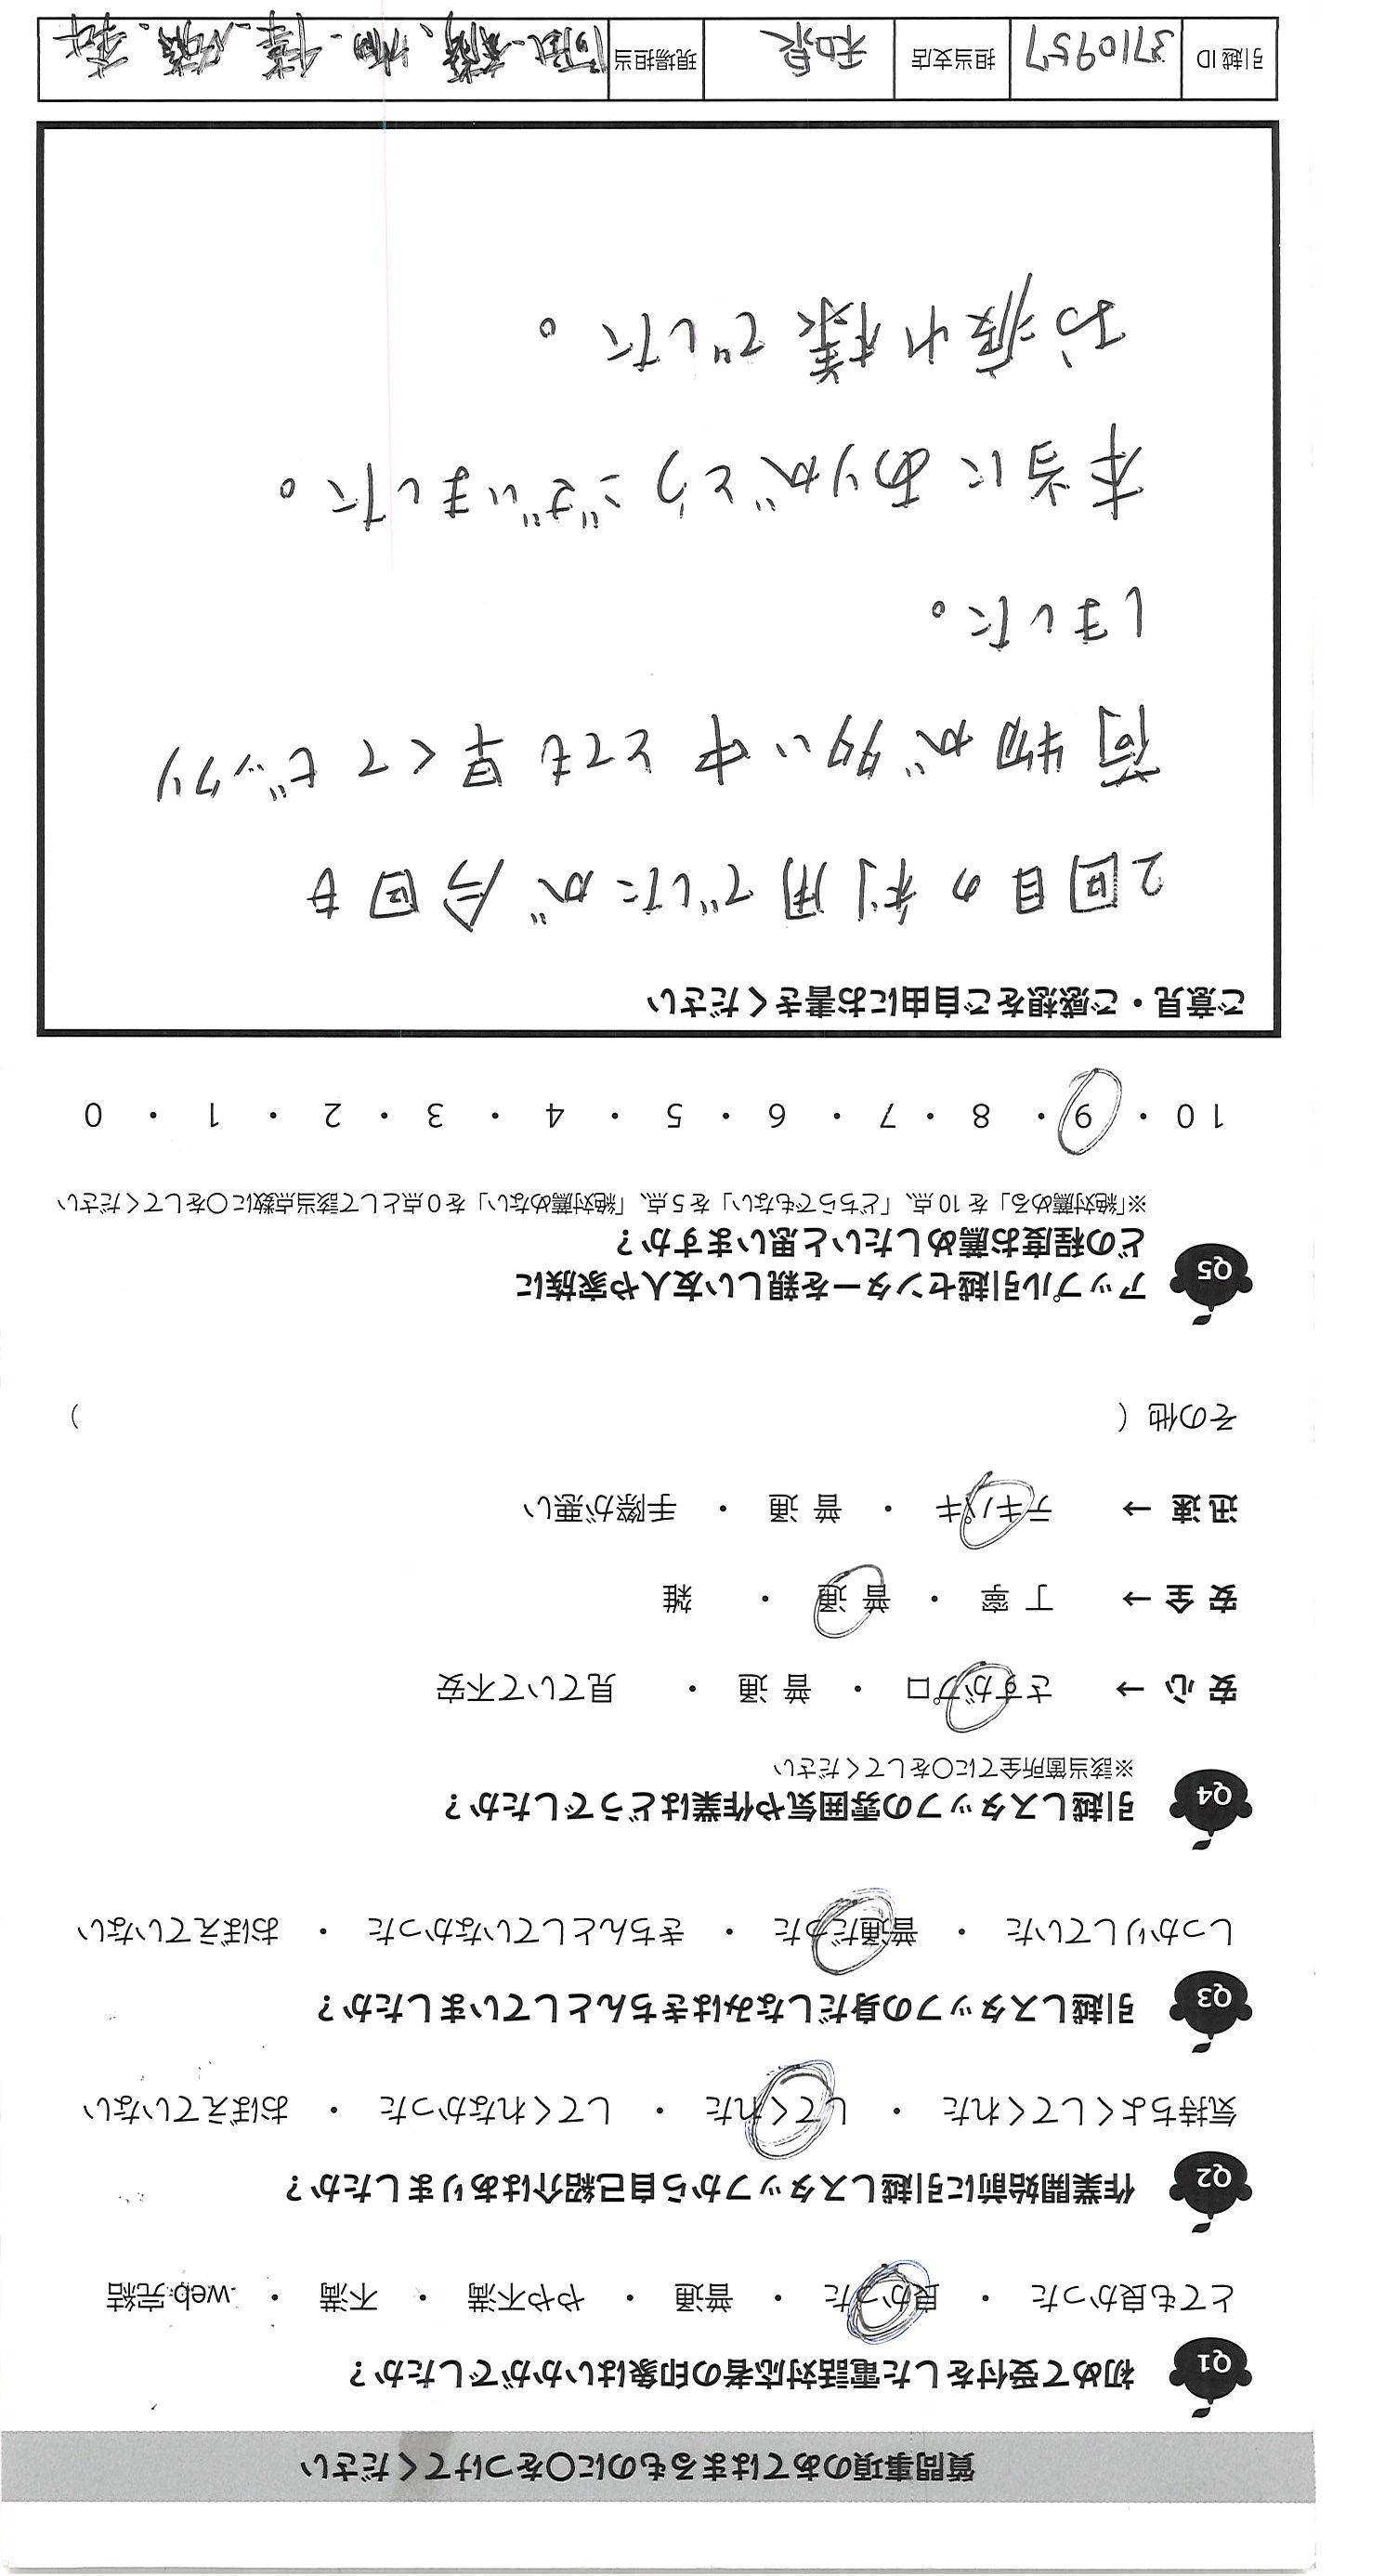 質問事項のあてはまるものに○をつけてください
Q1 初めて受付をした電話対応者の印象はいかがでしたか？
とても良かった ・ 良かった ・ 普通 ・ やや不満 ・ 不満 ・ web完結
Q2 作業開始前に引越しスタッフから自己紹介はありましたか？
気持ちよくしてくれた ・ してくれた ・ してくれなかった ・ おぼえていない
Q3 引越しスタッフの身だしなみはきちんとしていましたか？
しっかりしていた ・ 普通だった ・ きちんとしていなかった ・ おぼえていない
Q4 引越しスタッフの雰囲気や作業はどうでしたか？
※該当箇所全てに○をしてください
安心 → さすがプロ ・ 普通 ・ 見ていて不安
安全 → 丁寧 ・ 普通 ・ 雑
迅速 → テキパキ ・ 普通 ・ 手際が悪い
その他（ ）
Q5 アップル引越センターを親しい友人や家族に
どの程度お薦めしたいと思いますか？
※「絶対薦める」を10点、「どちらでもない」を5点、「絶対薦めない」を0点として該当点数に○をしてください
10 ・ 9 ・ 8 ・ 7 ・ 6 ・ 5 ・ 4 ・ 3 ・ 2 ・ 1 ・ 0
ご意見・ご感想をご自由にお書きください
2回目の利用でしたが今回も
荷物が多い中とても早くてビックリ
しました。
本当にありがとうございました。
お疲れ様でした。
引越ID 3710957 担当支店 和泉 現場担当